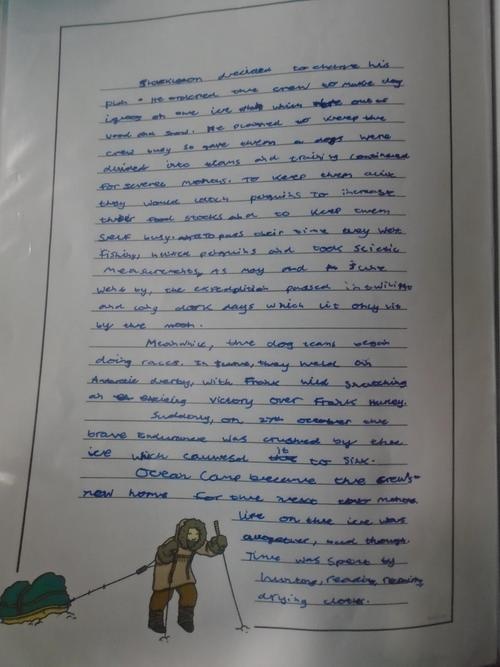 Shackleson decided to change his
plan. He ordered the crew to make dog
igloos on the ice which out of
wood and snow. He planned to keep the
crew busy so gave them a dogs were
divided into teams and training continued
for several months. To keep them alive
they would catch penguins to increase
their food stocks and to keep them
self busy. to pass their time they went
fishing, hunted penguins and took scientic
measurements. As may and June
went by, the expedition passed in twilight
and long dark days which lit only lit
by the moon.
Meanwhile, the dog teams began
doing races. In June, they held an
Antarctic derby, with Frank Wild snatching
an exciting victory over Frank Hurley.
Suddenly, on 27th October the
brave Endurance was crushed by the
ice which caused it to sink.
Ocean Camp became the crews
new home for the next months.
Life on the ice was
altogether, hard though.
Time was spent by
hunting, reading,
drying clothes.